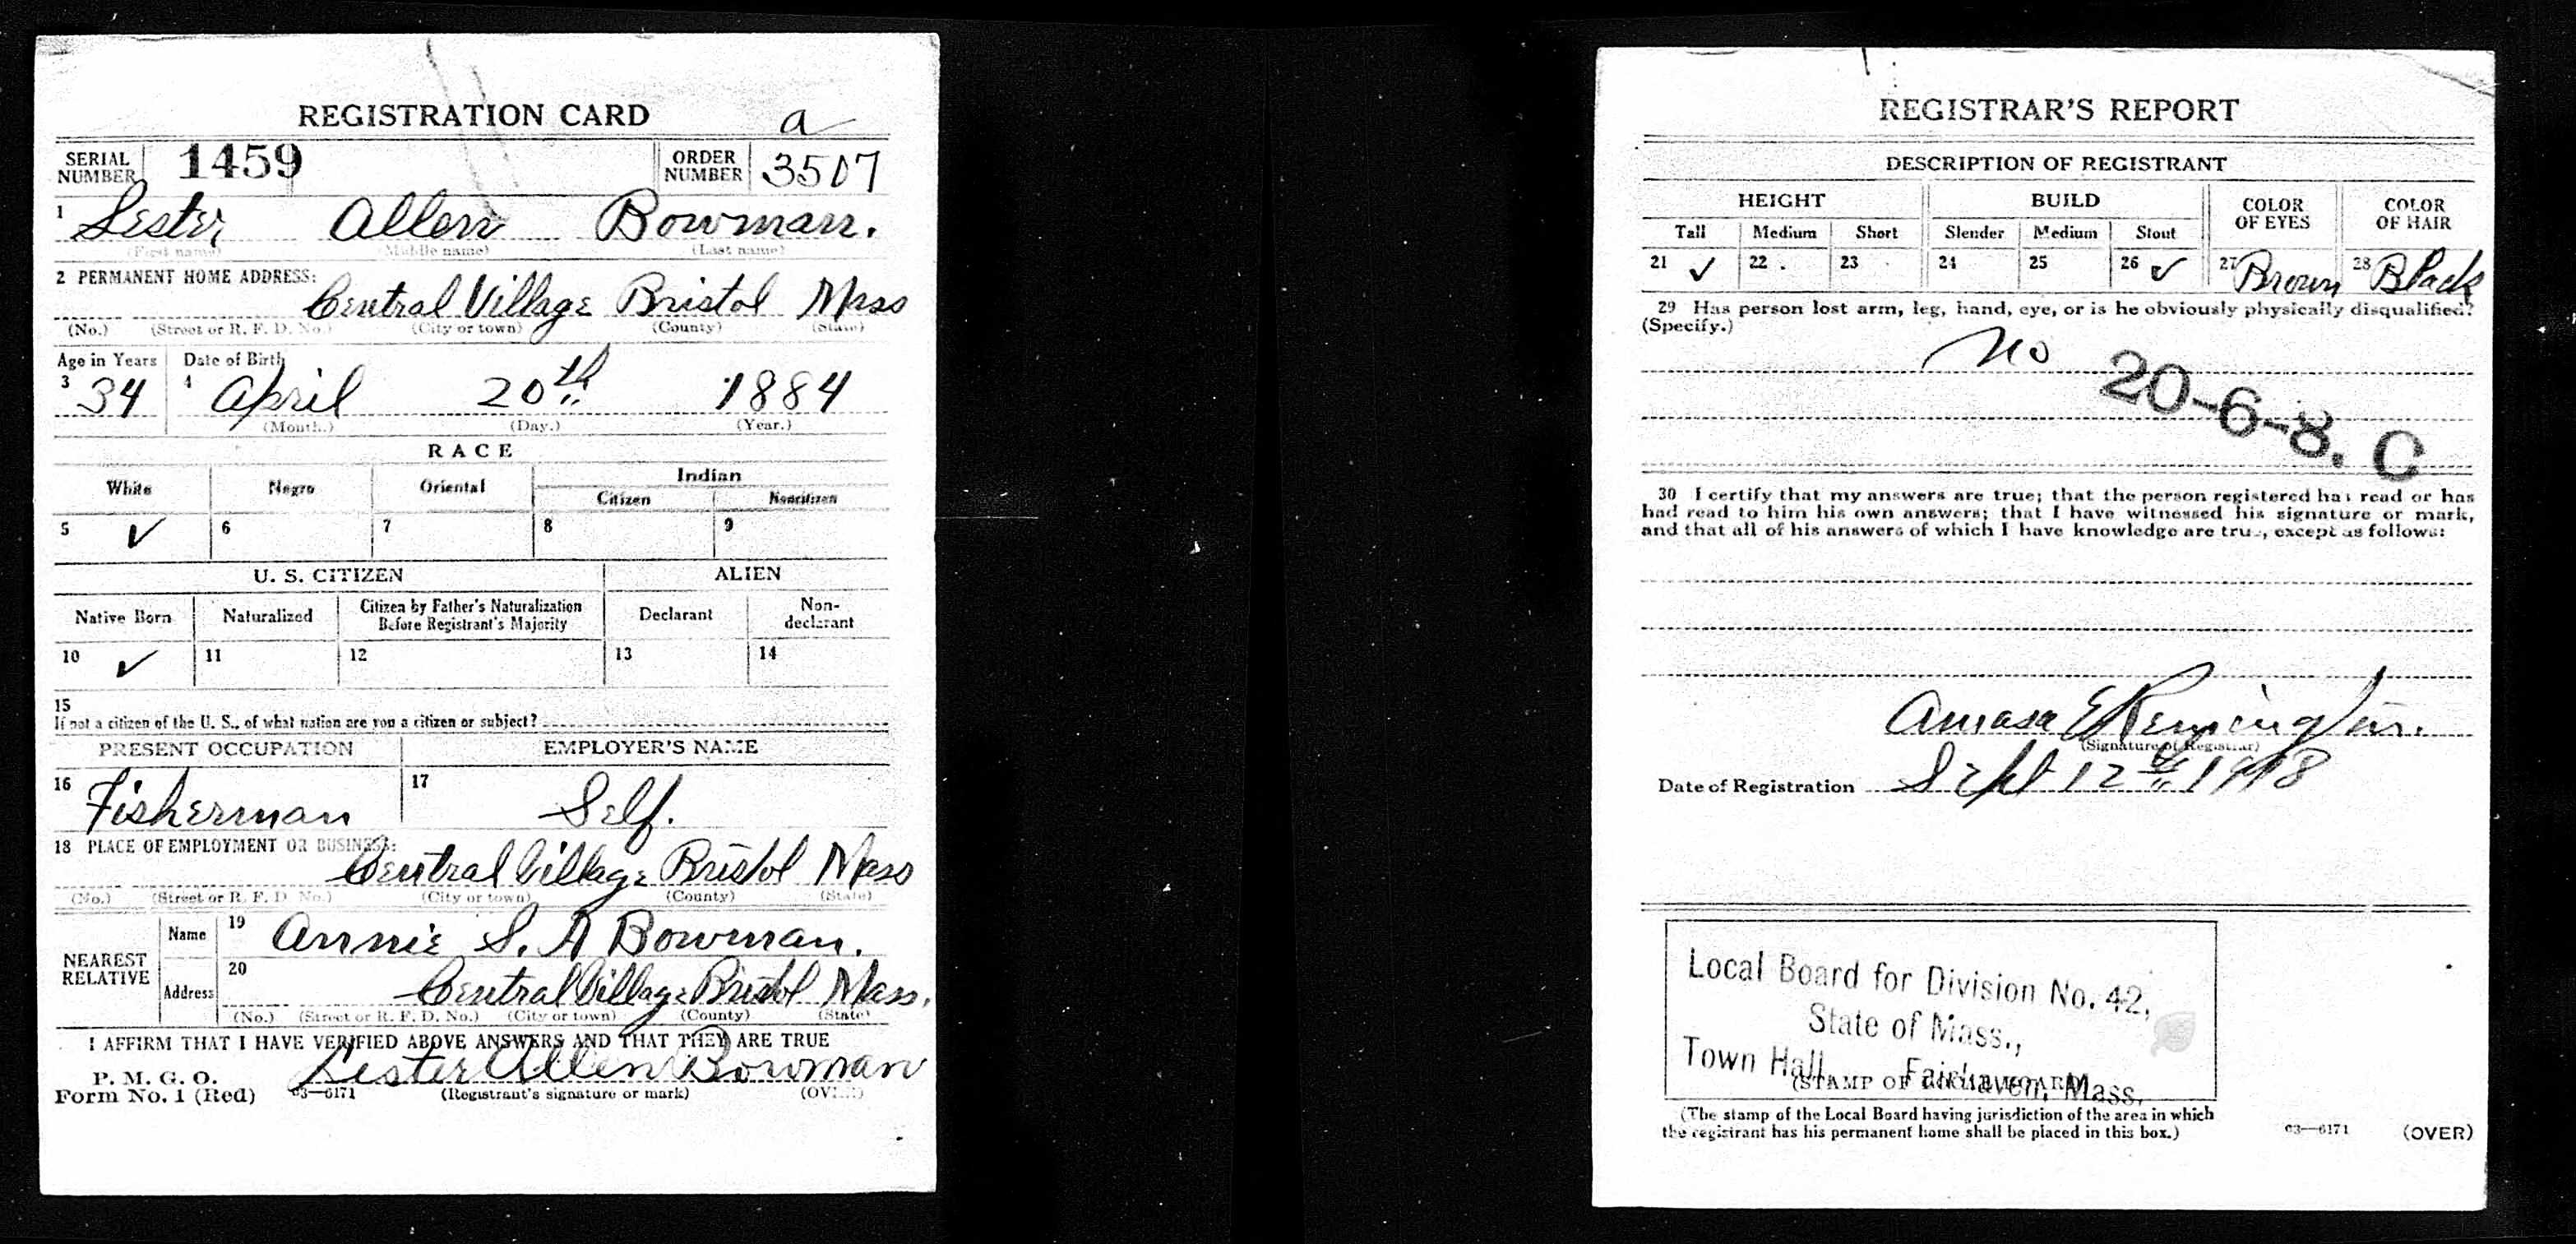 REGISTRATION CARD a
SERIAL NUMBER 1459 ORDER NUMBER 3507
1 Lester Allen Bowman.
(First name) (Middle name) (Last name)
2 PERMANENT HOME ADDRESS:
Central Village Bristol Mass
(No.) (Street or R. F. D. No.) (City or town) (County) (State)
Age in Years Date of Birth
3 34 4 April 20th 1884
(Month.) (Day.) (Year.)
RACE
White Negro Oriental Indian
Citizen Noncitizen
5 ✓ 6 7 8 9
U. S. CITIZEN ALIEN
Native Born Naturalized Citizen by Father's Naturalization Before Registrant's Majority Declarant Non-declarant
10 ✓ 11 12 13 14
15
If not a citizen of the U. S., of what nation are you a citizen or subject?
PRESENT OCCUPATION EMPLOYER'S NAME
16 Fisherman 17 Self.
18 PLACE OF EMPLOYMENT OR BUSINESS:
Central Village Bristol Mass
(No.) (Street or R. F. D. No.) (City or town) (County) (State)
NEAREST RELATIVE
Name 19 Annie S. A Bowman.
Address 20 Central Village Bristol Mass.
(No.) (Street or R. F. D. No.) (City or town) (County) (State)
I AFFIRM THAT I HAVE VERIFIED ABOVE ANSWERS AND THAT THEY ARE TRUE
P. M. G. O.
Form No. 1 (Red) 03—6171 Lester Allen Bowman
(Registrant's signature or mark) (OVER)
REGISTRAR'S REPORT
DESCRIPTION OF REGISTRANT
HEIGHT BUILD COLOR OF EYES COLOR OF HAIR
Tall Medium Short Slender Medium Stout
21 ✓ 22 23 24 25 26 ✓ 27 Brown 28 Black
29 Has person lost arm, leg, hand, eye, or is he obviously physically disqualified?
(Specify.)
No
20-6-8. C
30 I certify that my answers are true; that the person registered has read or has
had read to him his own answers; that I have witnessed his signature or mark,
and that all of his answers of which I have knowledge are true, except as follows:
Amasa E Remington.
(Signature of Registrar)
Date of Registration Sept 12th 1918
Local Board for Division No. 42,
State of Mass.,
Town Hall, Fairhaven, Mass.
(STAMP OF LOCAL BOARD)
(The stamp of the Local Board having jurisdiction of the area in which
the registrant has his permanent home shall be placed in this box.)
03—6171 (OVER)